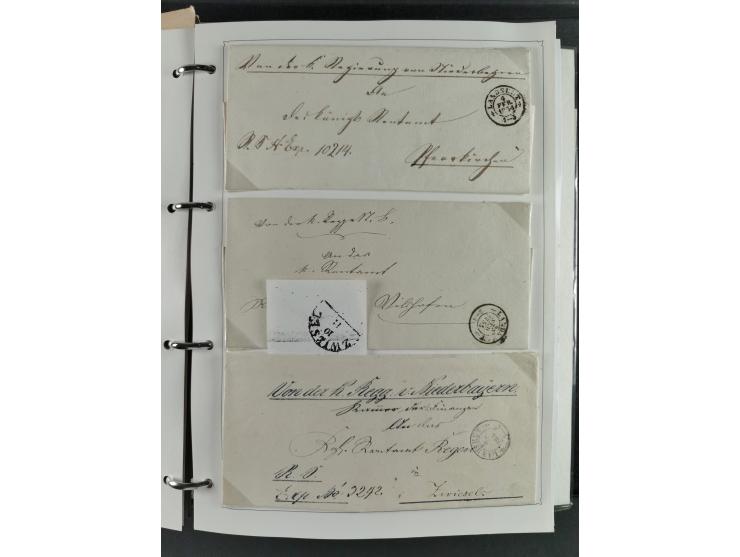 Von der k. Regierung von Niederbayern
An
das königl. Rentamt
R. S. N. Exp. 10214.
Pfarrkirchen
LANDSHUT
FEB.
Von der k.
An das
k. Rentamt
Vilshofen
ZWIESEL
10
11
Von der k. Regg. v. Niederbayern.
Kamer der Finanzen
An das
Kgl. Rentamt Regen
R. S. in
Exp. No 3292. Zwiesel.